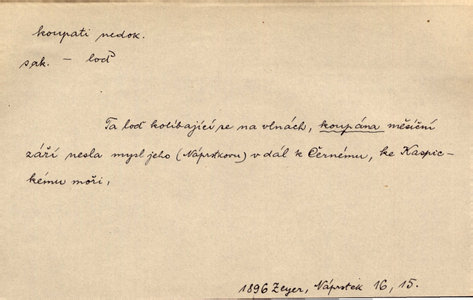 koupati nedok.
spk. – loď
Ta loď kolíbající se na vlnách, koupána měsíční
září nesla mysl jeho (Náprstkovu) v dál k Černému, ke Kaspic-
kému moři,
1896 Zeyer, Náprstek 16, 15.